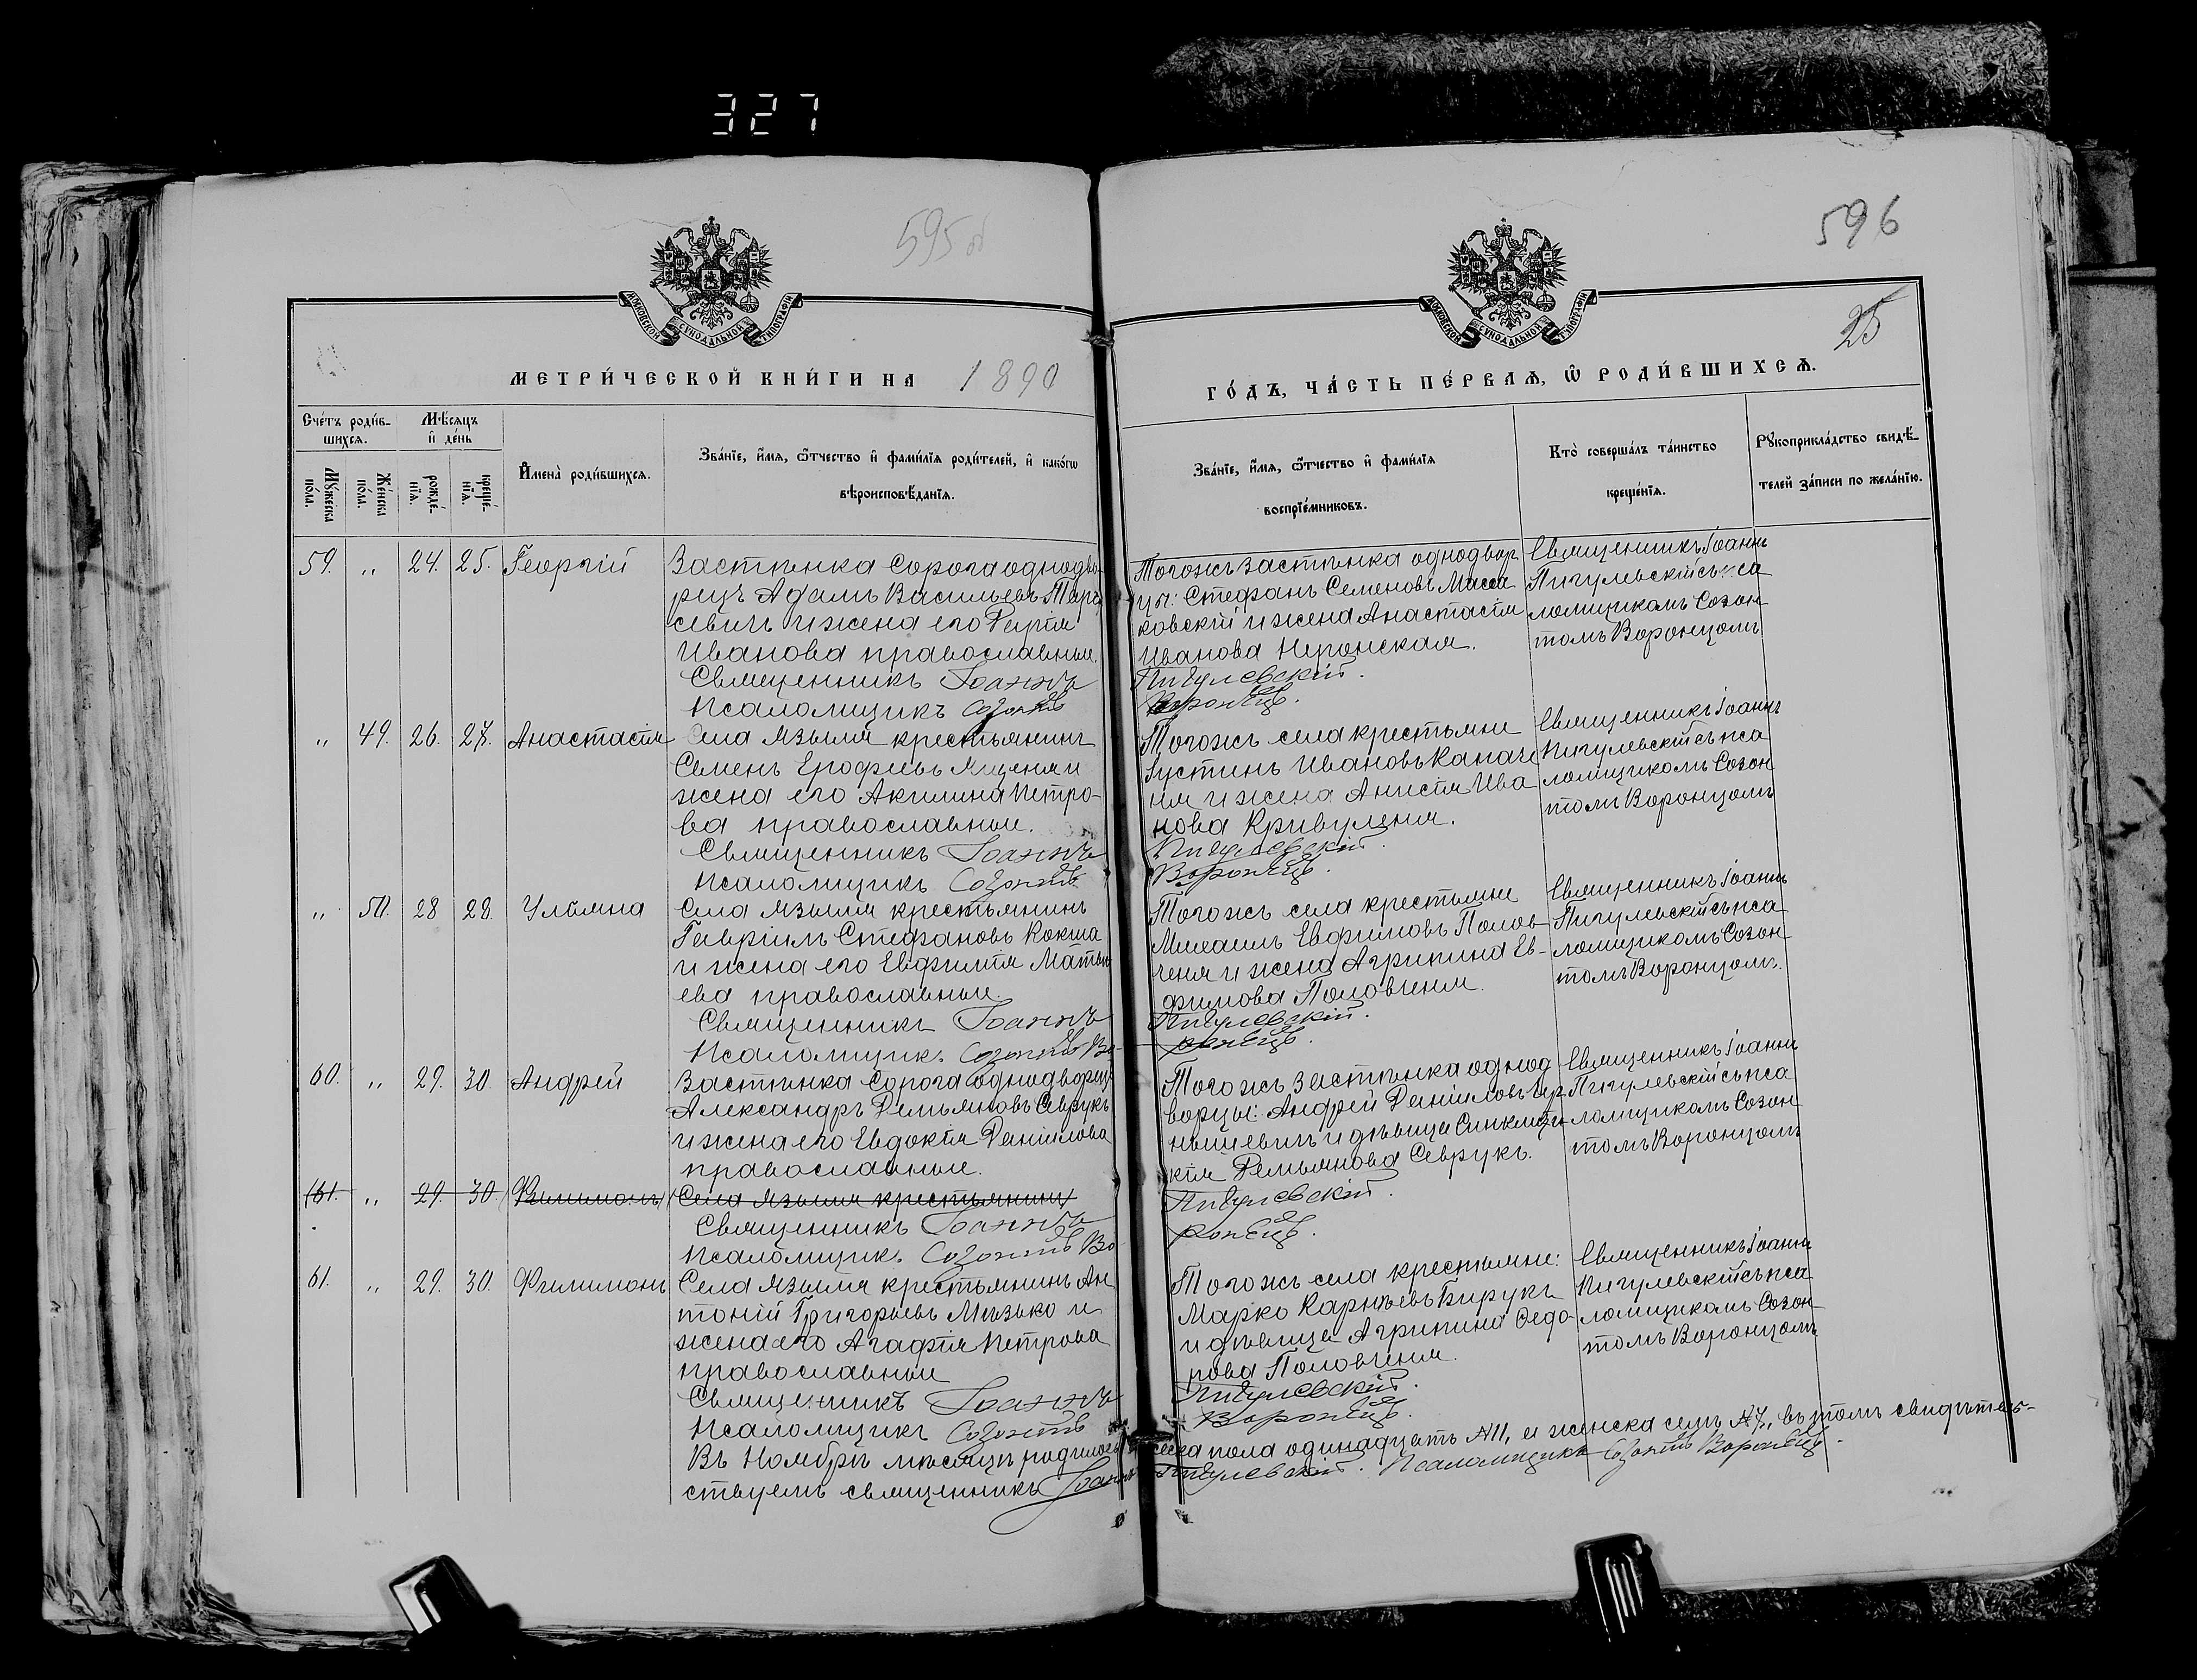 327
595 об
596
МОСКОВСКОЙ СУНОДАЛЬНОЙ ТИПОГРАФІИ
МОСКОВСКОЙ СУНОДАЛЬНОЙ ТИПОГРАФІИ
25
МЕТРИ́ЧЕСКОЙ КНИ́ГИ НА 1890
ГО́ДЪ, ЧА́СТЬ ПЕ́РВАѦ, Ѡ҆ РОДИ́ВШИХСѦ.
Сче́тъ роди́в-
шихсѧ.
Мѣ́сѧцъ
и҆ де́нь
Мꙋ́жеска
по́ла.
Же́нска
по́ла.
рожде́-
нїѧ.
креще́-
нїѧ.
И҆мена̀ роди́вшихсѧ.
Зва́нїе, и҆́мѧ, ѻ҆́тчество и҆ фами́лїѧ роди́телей, и҆ како́гѡ
вѣроисповѣ́данїѧ.
Зва́нїе, и҆́мѧ, ѻ҆́тчество и҆ фами́лїѧ
воспрїе́мниковъ.
Кто̀ соверша́лъ та́инство
креще́нїѧ.
Рꙋкоприкла́дство свидѣ́-
телей за́писи по жела́нїю.
59. " 24. 25. Георгій
Застѣнка Сорога однодво-
рецъ Адамъ Васильевъ
севичъ и жена его
Иванова православные.
Священникъ Іоаннъ
Псаломщикъ Созонтъ
Тогожъ застѣнка однодвор
цы: Стефанъ Семеновъ
ковскій и жена Анастасія
Иванова
Пигулевскій.
Воронецъ.
Священникъ Іоаннъ
Пигулевскій съ пса
ломщикомъ Созон
томъ Воронцомъ
" 49. 26. 27. Анастасія
Села Языля крестьянинъ
Семенъ Ерофѣевъ Яцменя и
жена его Акилина Петро-
ва православные.
Священникъ Іоаннъ
Псаломщикъ Созонтъ
Тогожъ села крестьяне
Іустинъ Ивановъ Капаче
ня и жена Анисія Ива
нова Кривуленя.
Пигулевскій.
Воронецъ.
Священникъ Іоаннъ
Пигулевскій съ пса
ломщикомъ Созон
томъ Воронцомъ
" 50. 28 28. Уліяна
Села Языля крестьянинъ
Гавріилъ Стефановъ Кокша
и жена его Евфимія Матѳе
ева православные.
Священникъ Іоаннъ
Псаломщикъ Созонтъ Во-
Тогожъ села крестьяне
Михаилъ Евфимовъ Полов
ченя и жена Агрипина Ев-
фимова Половченя.
Пигулевскій.
ронецъ.
Священникъ Іоаннъ
Пигулевскій съ пса
ломщикомъ Созон
томъ Воронцомъ.
60. " 29. 30. Андрей
Застѣнка Сорога однодворецъ
Александръ Демьяновъ Севрукъ
и жена его Евдокія Даніилова
православные.
Тогожъ застѣнка однод
ворцы: Андрей Даніиловъ
и дѣвица
кія Демьянова Севрукъ.
Пигулевскій.
Священникъ Іоаннъ
Пигулевскій съ пса
ломщикомъ Созон
томъ Воронцомъ
(61. " 29. 30. Филимонъ) (Села Языля крестьянинъ)
Священникъ Іоаннъ
Псаломщикъ Созонтъ Во-
ронецъ.
61. " 29. 30. Филимонъ
Села Языля крестьянинъ Ан
тоній Григорьевъ Мизько и
жена его Агафія Петрова
православные
Священникъ Іоаннъ
Псаломщикъ Созонтъ
Тогожъ села крестьяне:
Марко Карнѣевъ Бирукъ
и дѣвица Агрипина Ѳедо-
рова Половченя.
Пигулевскій.
Воронецъ.
Священникъ Іоаннъ
Пигулевскій съ пса
ломщикомъ Созон
томъ Воронцомъ
Въ Ноябрѣ мѣсяцѣ родилось мужеска пола одинадцать №11, и женска семь №7, въ томъ свидѣтель-
ствуемъ священникъ Іоаннъ Пигулевскій. Псаломщикъ Созонтъ Воронецъ.